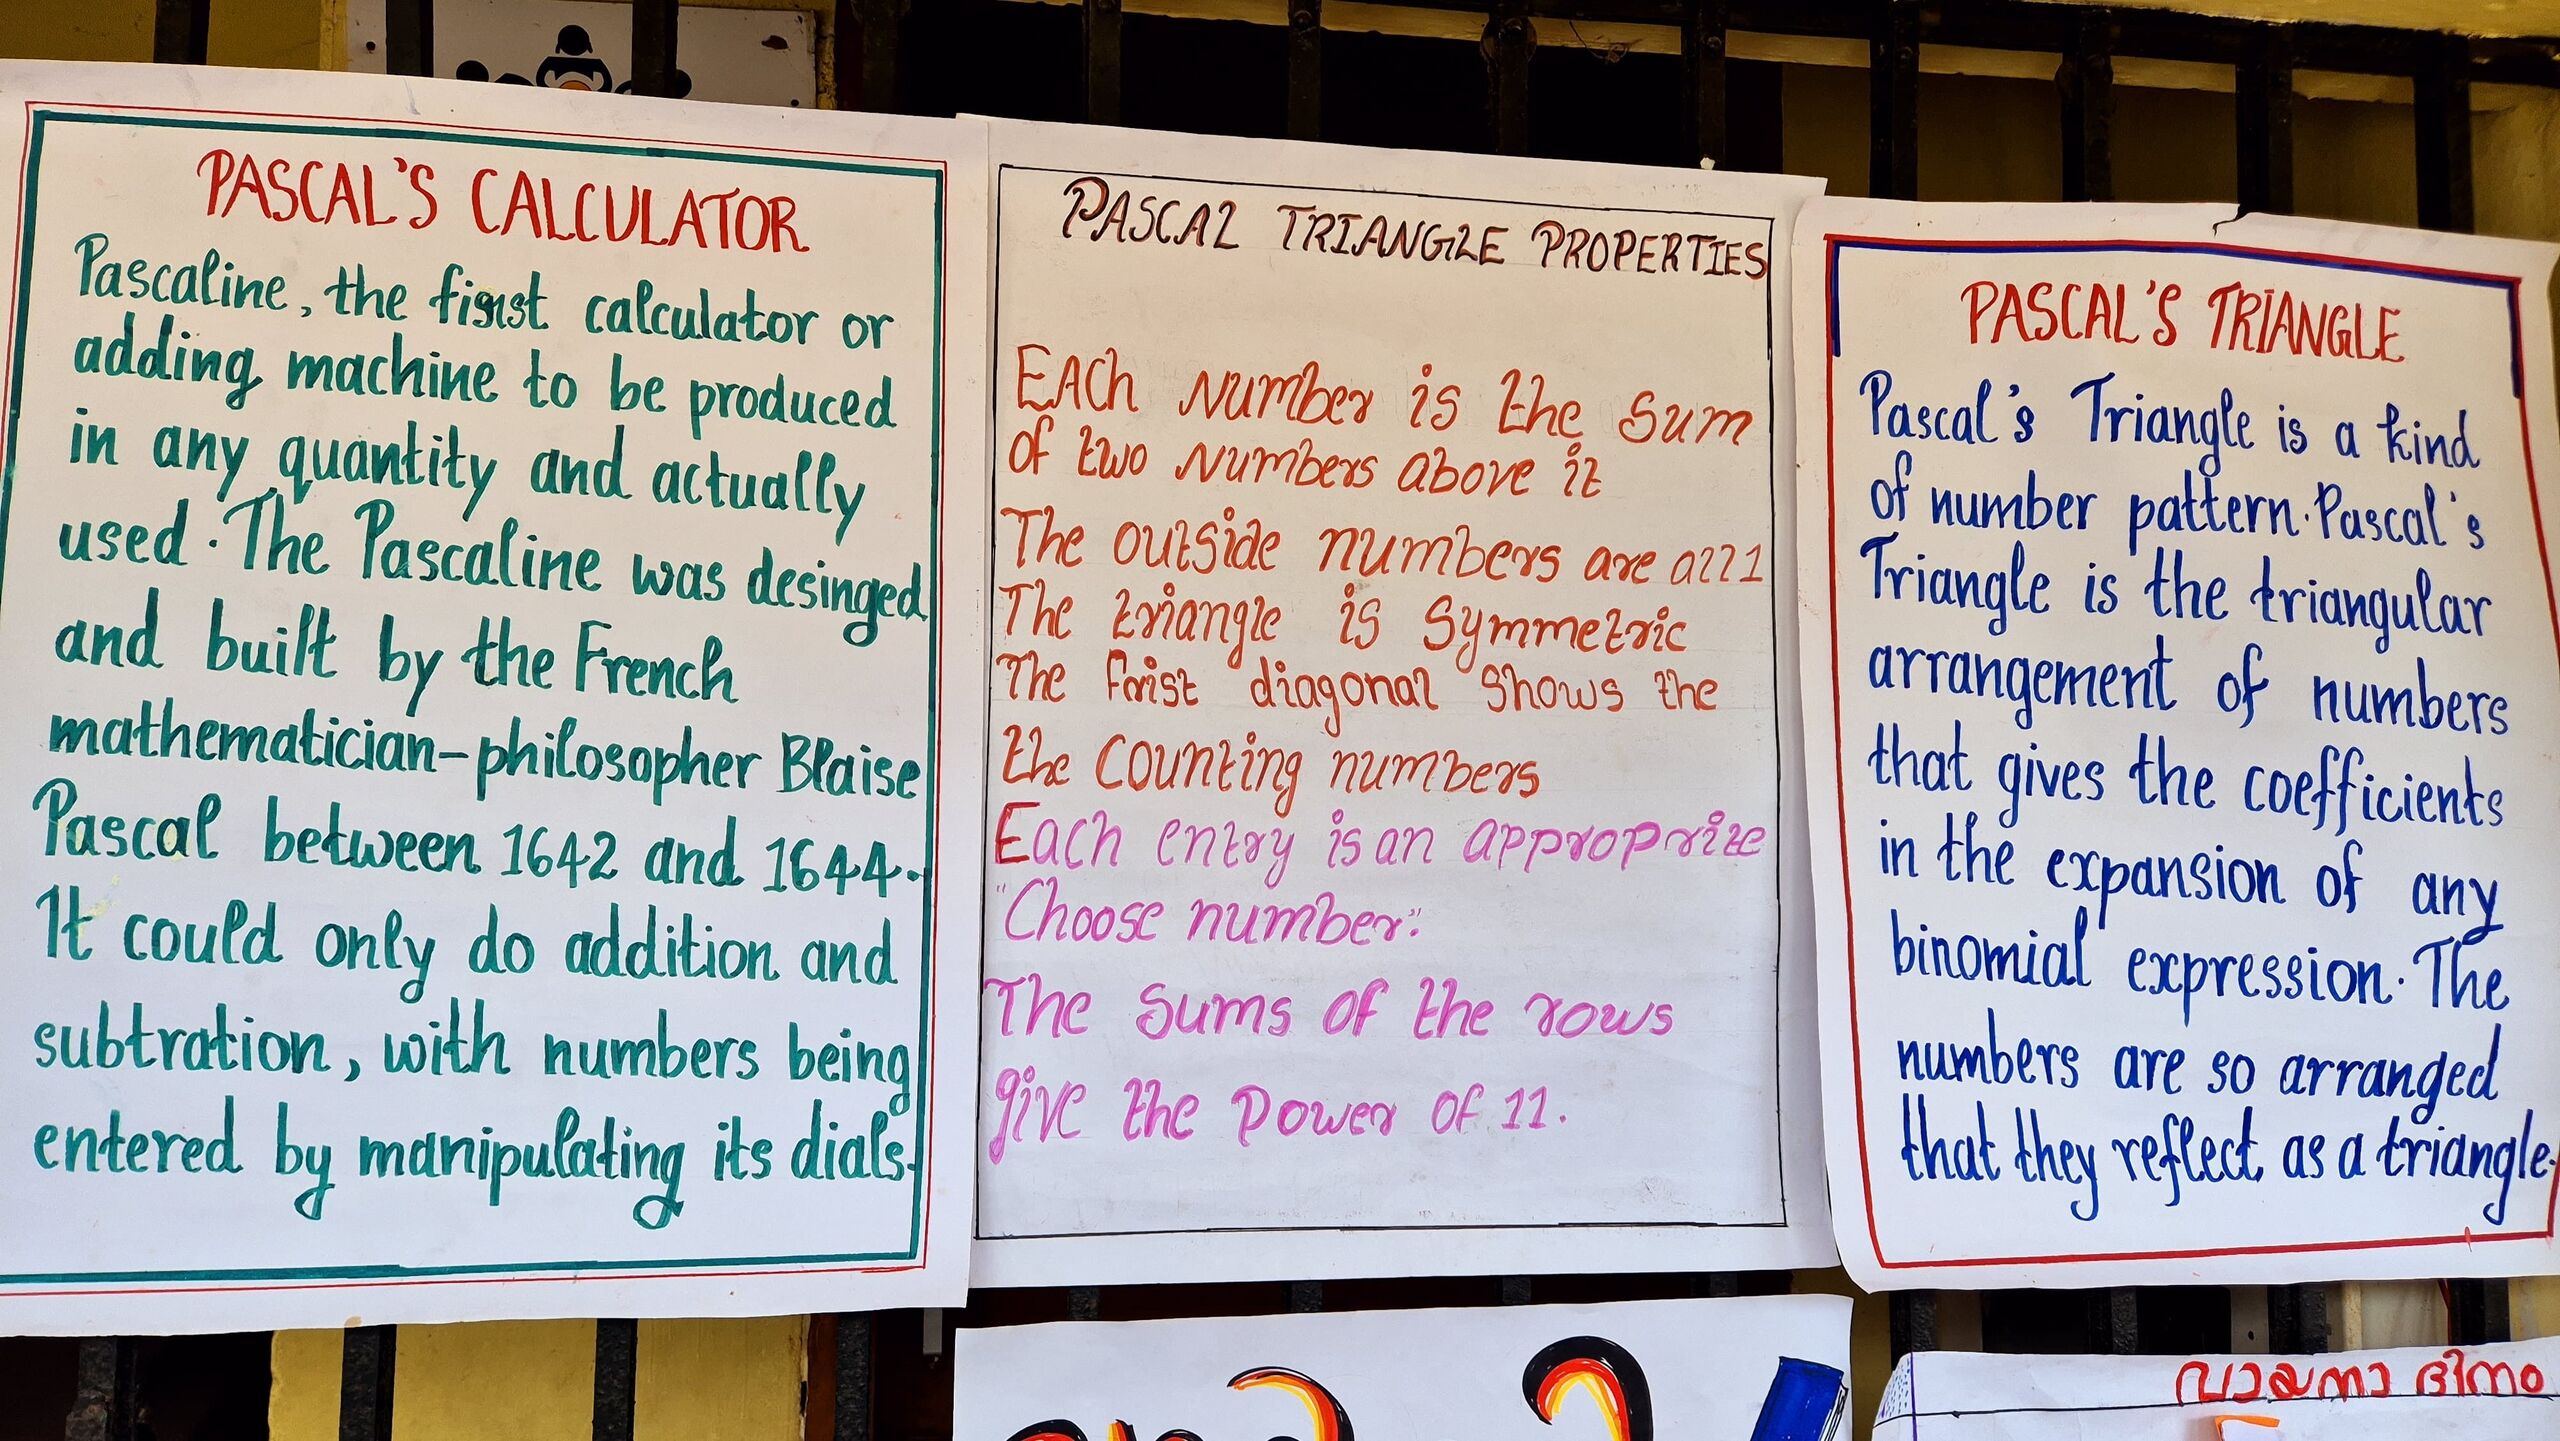 PASCAL'S CALCULATOR
Pascaline, the first calculator or
adding machine to be produced
in any quantity and actually
used. The Pascaline was desinged
and built by the French
mathematician-philosopher Blaise
Pascal between 1642 and 1644.
It could only do addition and
subtration, with numbers being
entered by manipulating its dials.
PASCAL TRIANGLE PROPERTIES
EACh Number is the Sum
of two Numbers above it
The outside numbers are all 1
The triangle is Symmetric
The diagonal shows the
the Counting numbers
Each entry is an
"Choose number".
The Sums of the rows
give the Power of 11.
PASCAL'S TRIANGLE
Pascal's Triangle is a kind
of number pattern. Pascal's
Triangle is the triangular
arrangement of numbers
that gives the coefficients
in the expansion of any
binomial expression. The
numbers are so arranged
that they reflect as a triangle.
വായനാ ദിനം